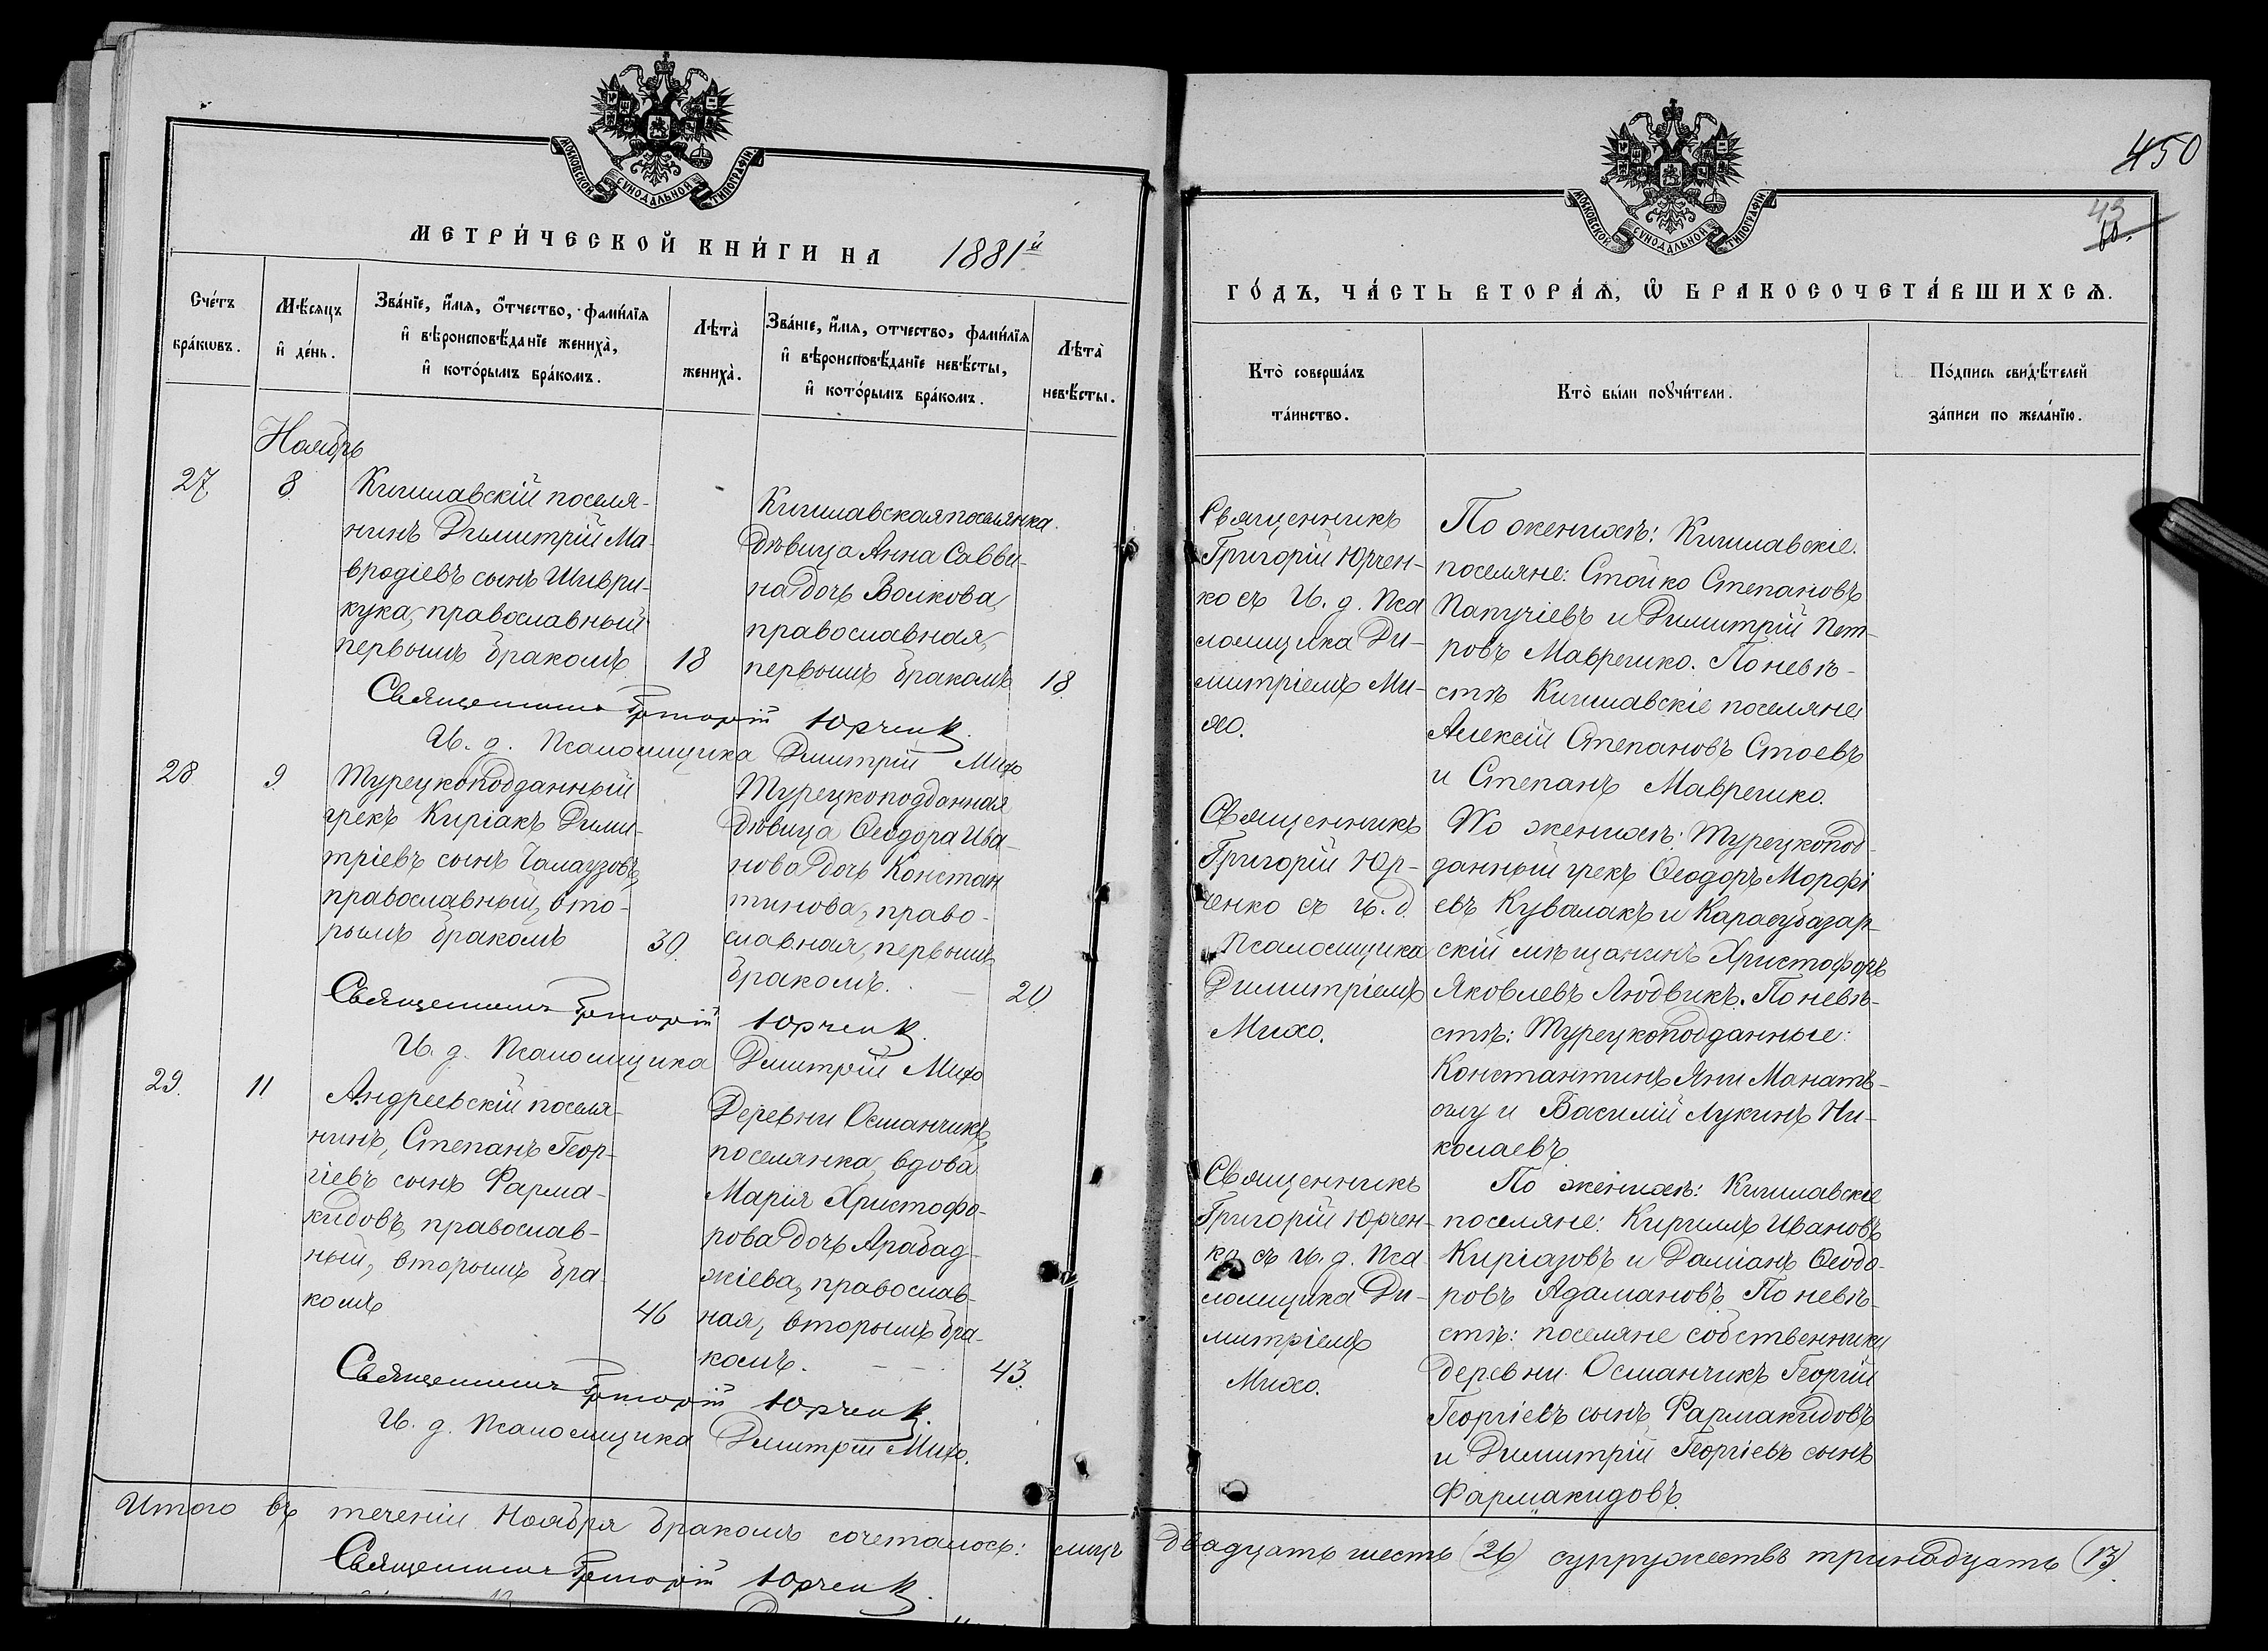 МОСКОВСКОЙ СУНОДАЛЬНОЙ ТИПОГРАФІИ
МЕТРИ́ЧЕСКОЙ КНИ́ГИ НА 1881й
Сче́тъ бра́кωвъ.
Мѣ́сяцъ и҆ де́нь.
Зва́нїе, и҆́мя, ѻ҆́тчество, фами́лїя
и҆ вѣроисповѣ́данїе жениха̀,
и҆ кото́рымъ бра́комъ.
Лѣта̀ жениха̀.
Зва́нїе, и҆́мя, ѻтчество, фами́лїя
и҆ вѣроисповѣ́данїе невѣ́сты,
и҆ кото́рымъ бра́комъ.
Лѣта̀ невѣ́сты.
Ноябрь
27
8
Кишлавскій поселя-
нинъ Димитрій Ма-
вродіевъ сынъ Шиври-
кука, православный
первымъ бракомъ
18
Кишлавская поселянка
дѣвица Анна Савви-
на дочь Волкова,
православная,
первымъ бракомъ
18
Священникъ Григорій Юрченко.
И. д. Псаломщика Димитрій Михо
28
9
Турецкоподданный
грекъ Киріакъ Дими-
тріевъ сынъ Чалаузовъ,
православный, вто-
рымъ бракомъ
30.
Турецкоподданная
дѣвица Ѳеодора Ива-
нова дочь Констан
тинова, право-
славная, первымъ
бракомъ.
20
Священникъ Григорій Юрченко.
И. д. Псаломщика Димитрій Михо
29.
11
Андреевскій поселя-
нинъ, Степанъ Геор-
гіевъ сынъ Фарма-
кидовъ, православ-
ный, вторымъ бра-
комъ
46
Деревни Османчикъ,
поселянка, вдова
Марія Христофо-
рова дочь Арабад-
жіева, православ-
ная, вторымъ бра-
комъ.
43.
Священникъ Григорій Юрченко.
И. д. Псаломщика Димитрій Михо.
Итого въ теченіи Ноября бракомъ сочеталось: лицъ двадцать шесть (26) супружествъ тринадцать (13).
Священникъ Григорій Юрченко.
450
43
МОСКОВСКОЙ СУНОДАЛЬНОЙ ТИПОГРАФІИ
ГО́ДЪ, ЧА́СТЬ ВТОРА́Ѧ, Ѡ҆ БРАКОСОЧЕТА́ВШИХСѦ.
Кто̀ соверша́лъ
та́инство.
Кто̀ бы́ли поꙋчи́тели.
По́дпись свидѣ́телей
за́писи по жела́нїю.
Священникъ
Григорій Юрчен-
ко съ И. д. Пса
ломщика Ди-
митріемъ Ми-
хо.
По женихѣ: Кишлавскіе
поселяне: Стойко Степановъ
Папучіевъ и Димитрій Пет-
ровъ Маврешко. По невѣ-
стѣ Кишлавскіе поселяне
Алексій Степановъ Стоевъ
и Степанъ Маврешко.
Священникъ
Григорій Юр-
ченко съ И. д.
Псаломщика
Димитріемъ
Михо.
По женихѣ: Турецкопод-
данный грекъ Ѳеодоръ Морфі
евъ Кувалакъ и Карасубазар-
скій мѣщанинъ Христофоръ
Яковлевъ Людвикъ. По невѣ-
стѣ: Турецкоподданные:
Константинъ Яни Манать-
оглу и Василій Лукинъ Ни-
колаевъ
Священникъ
Григорій Юрчен-
ко съ И. д. Пса-
ломщика Ди-
митріемъ
Михо.
По женихѣ: Кишлавскіе
поселяне: Кириллъ Ивановъ
Киріазовъ и Даміанъ Ѳеодо-
ровъ Адамановъ. По невѣ-
стѣ: поселяне собственники
деревни Османчикъ Георгій
Георгіевъ сынъ Фармакидовъ
и Димитрій Георгіевъ сынъ
Фармакидовъ.